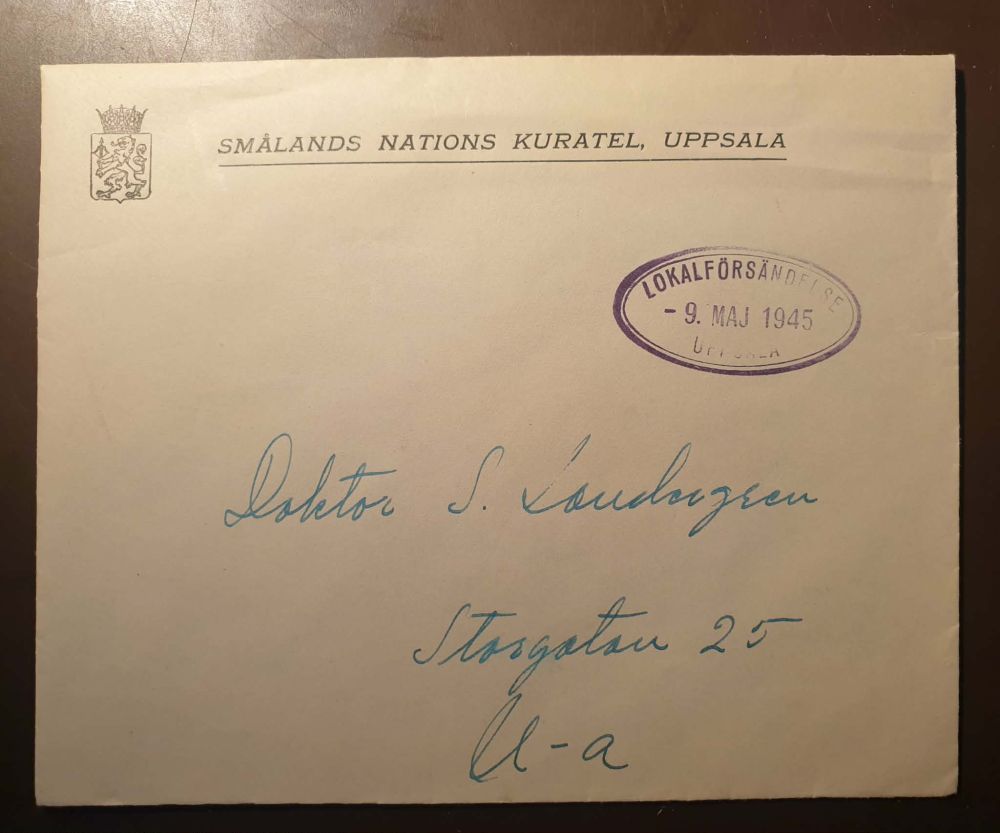 SMÅLANDS NATIONS KURATEL, UPPSALA
LOKALFÖRSÄNDELSE
- 9. MAJ 1945
UPPSALA
Doktor S. Landergren
Storgatan 25
U-a